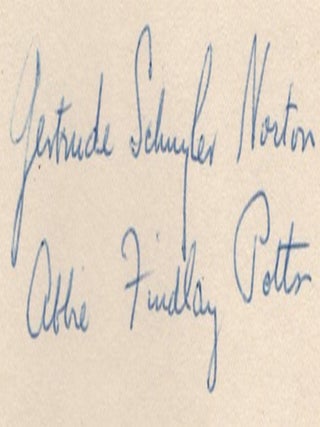 Gertrude Schuyler Norton
Abbie Findlay Potts